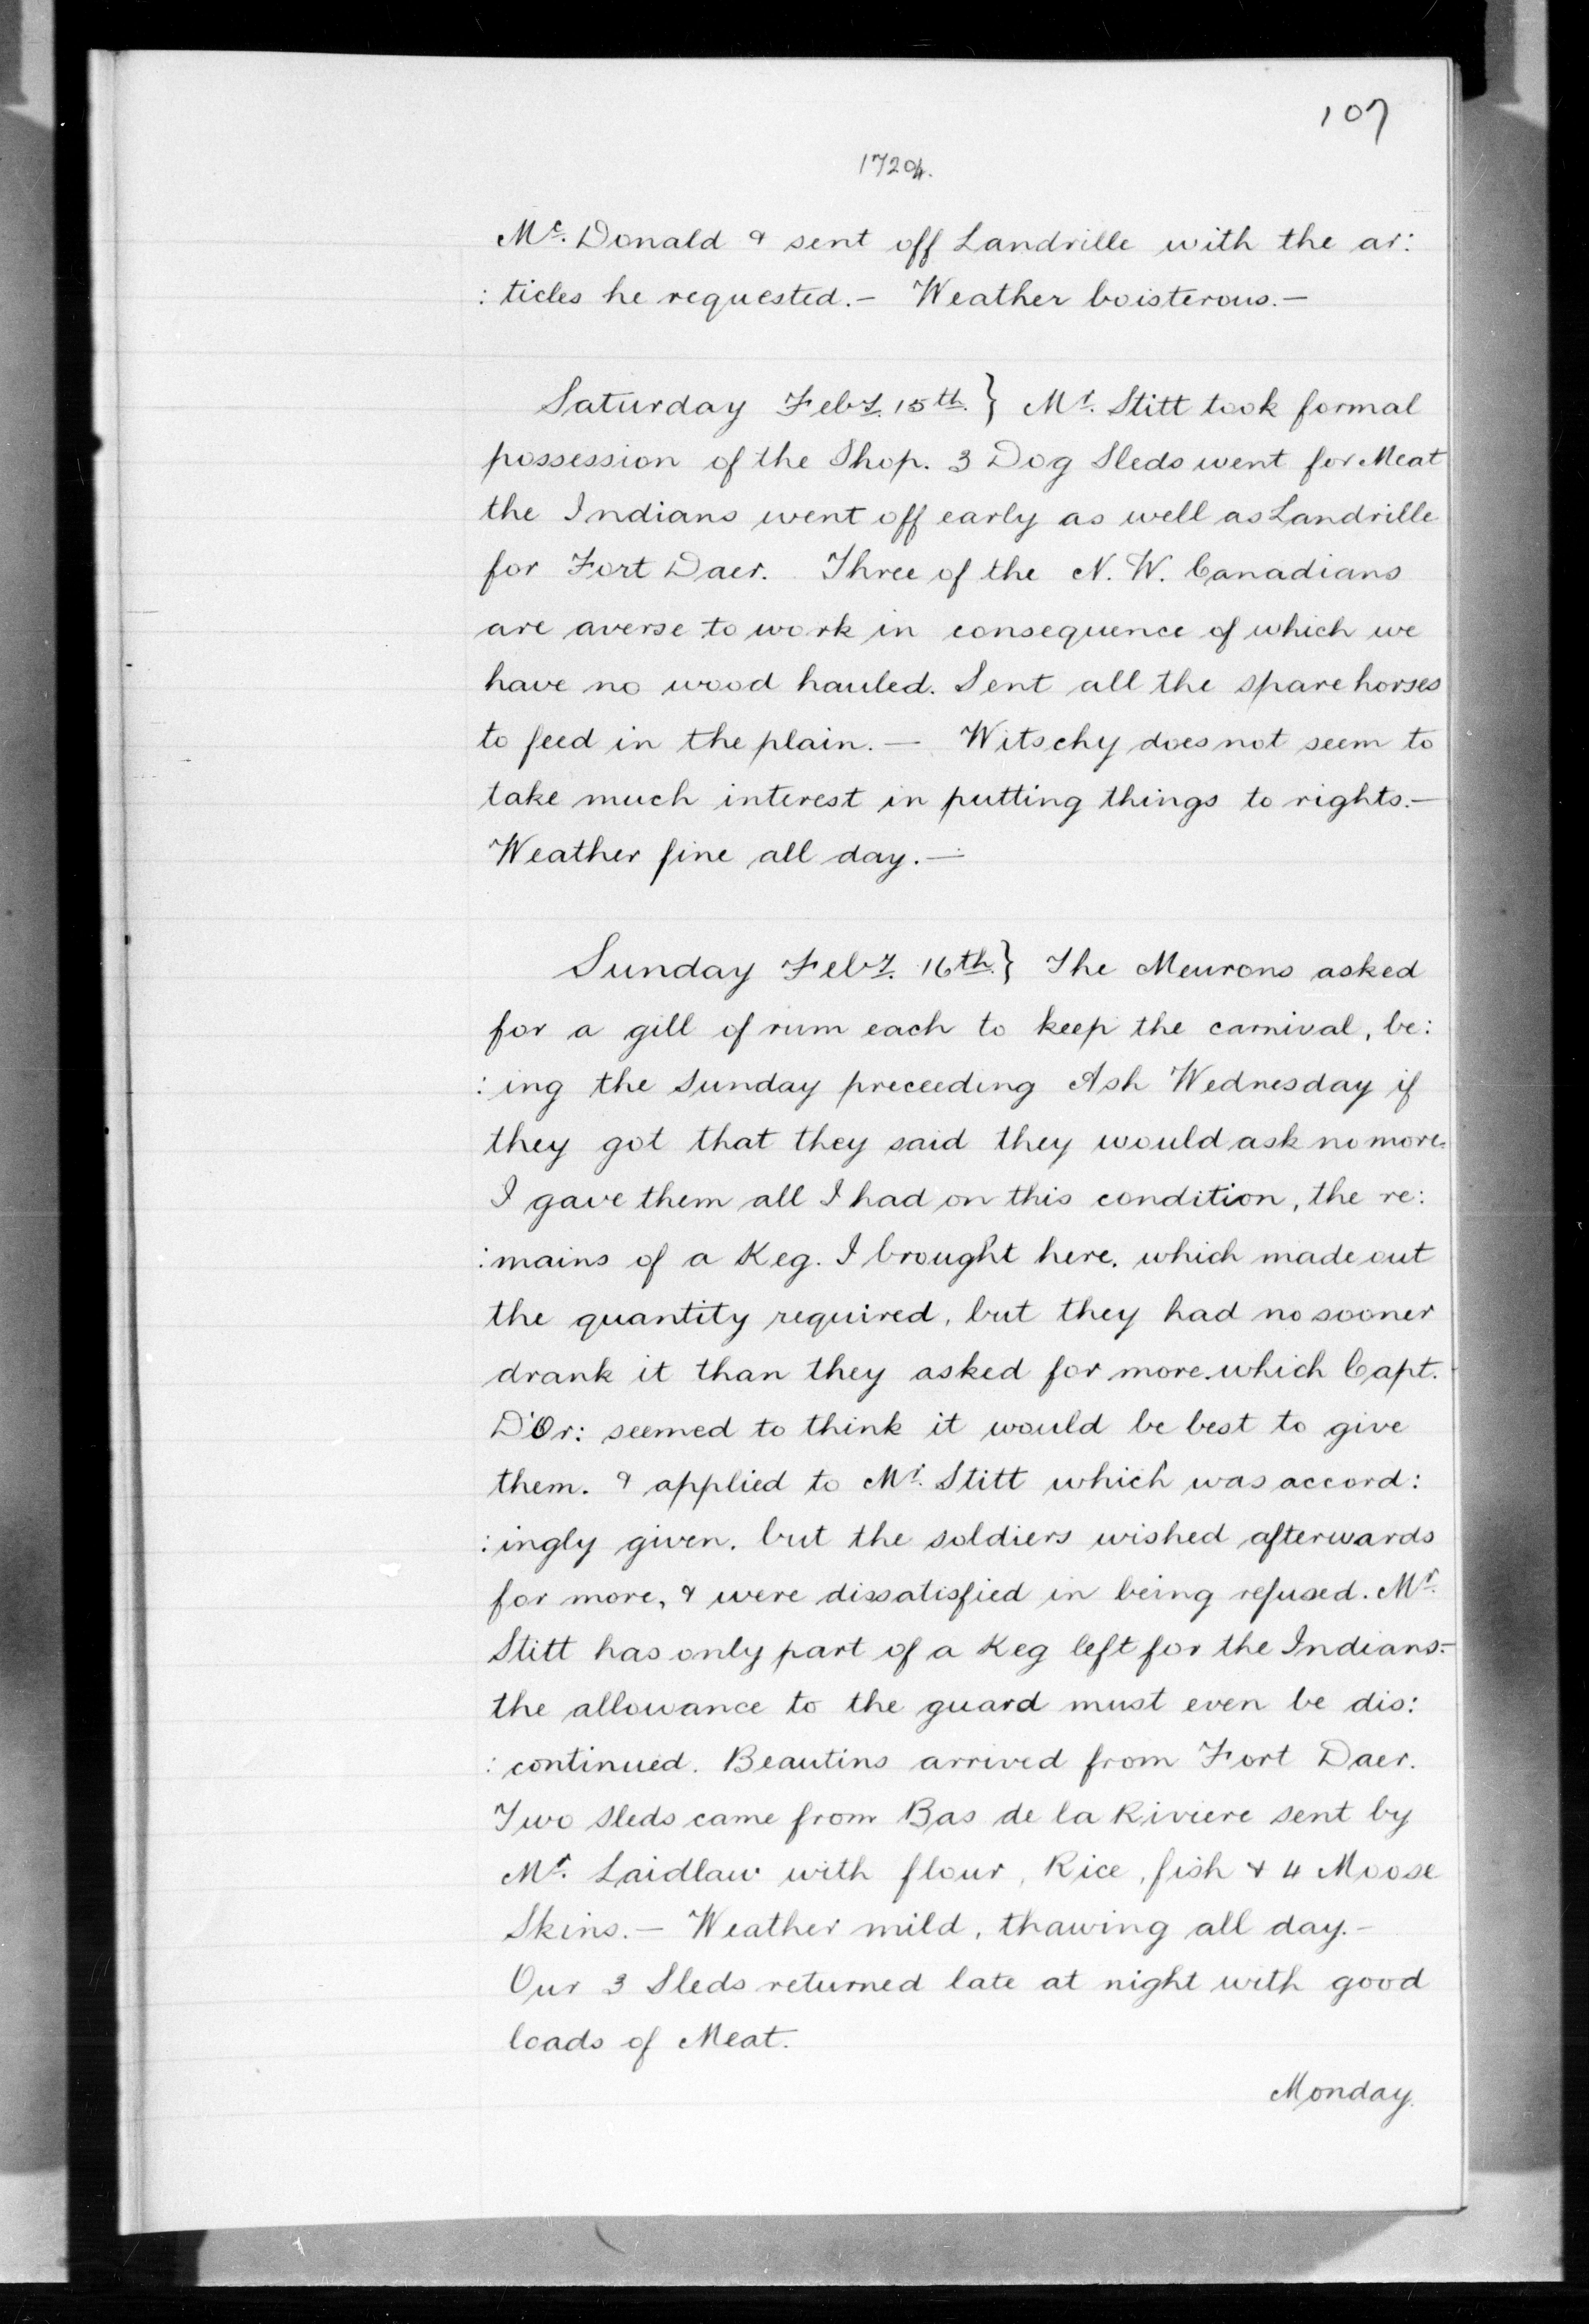 107
1720h.
Mc. Donald & sent off Landrille with the ar:
: ticles he requested.— Weather boisterous.—
Saturday Feby. 15th. } Mr. Stitt took formal
possession of the Shop. 3 Dog Sleds went for Meat
the Indians went off early as well as Landrille
for Fort Daer. Three of the N. W. Canadians
are averse to work in consequence of which we
have no wood hauled. Sent all the spare horses
to feed in the plain. — Witschy does not seem to
take much interest in putting things to rights.—
Weather fine all day.—
Sunday Feby. 16th. } The Meurons asked
for a gill of rum each to keep the carnival, be:
: ing the Sunday preceeding Ash Wednesday if
they got that they said they would ask no more.
I gave them all I had on this condition, the re:
: mains of a Keg. I brought here. which made out
the quantity required, but they had no sooner
drank it than they asked for more. which Capt.
D'Or: seemed to think it would be best to give
them. & applied to Mr. Stitt which was accord:
: ingly given. but the soldiers wished afterwards
for more, & were dissatisfied in being refused. Mr.
Stitt has only part of a Keg left for the Indians.—
the allowance to the guard must even be dis:
: continued. Beautins arrived from Fort Daer.
Two Sleds came from Bas de la Riviere sent by
Mr. Laidlaw with flour, Rice, fish & 4 Moose
Skins.— Weather mild, thawing all day.—
Our 3 Sleds returned late at night with good
loads of Meat.
Monday.